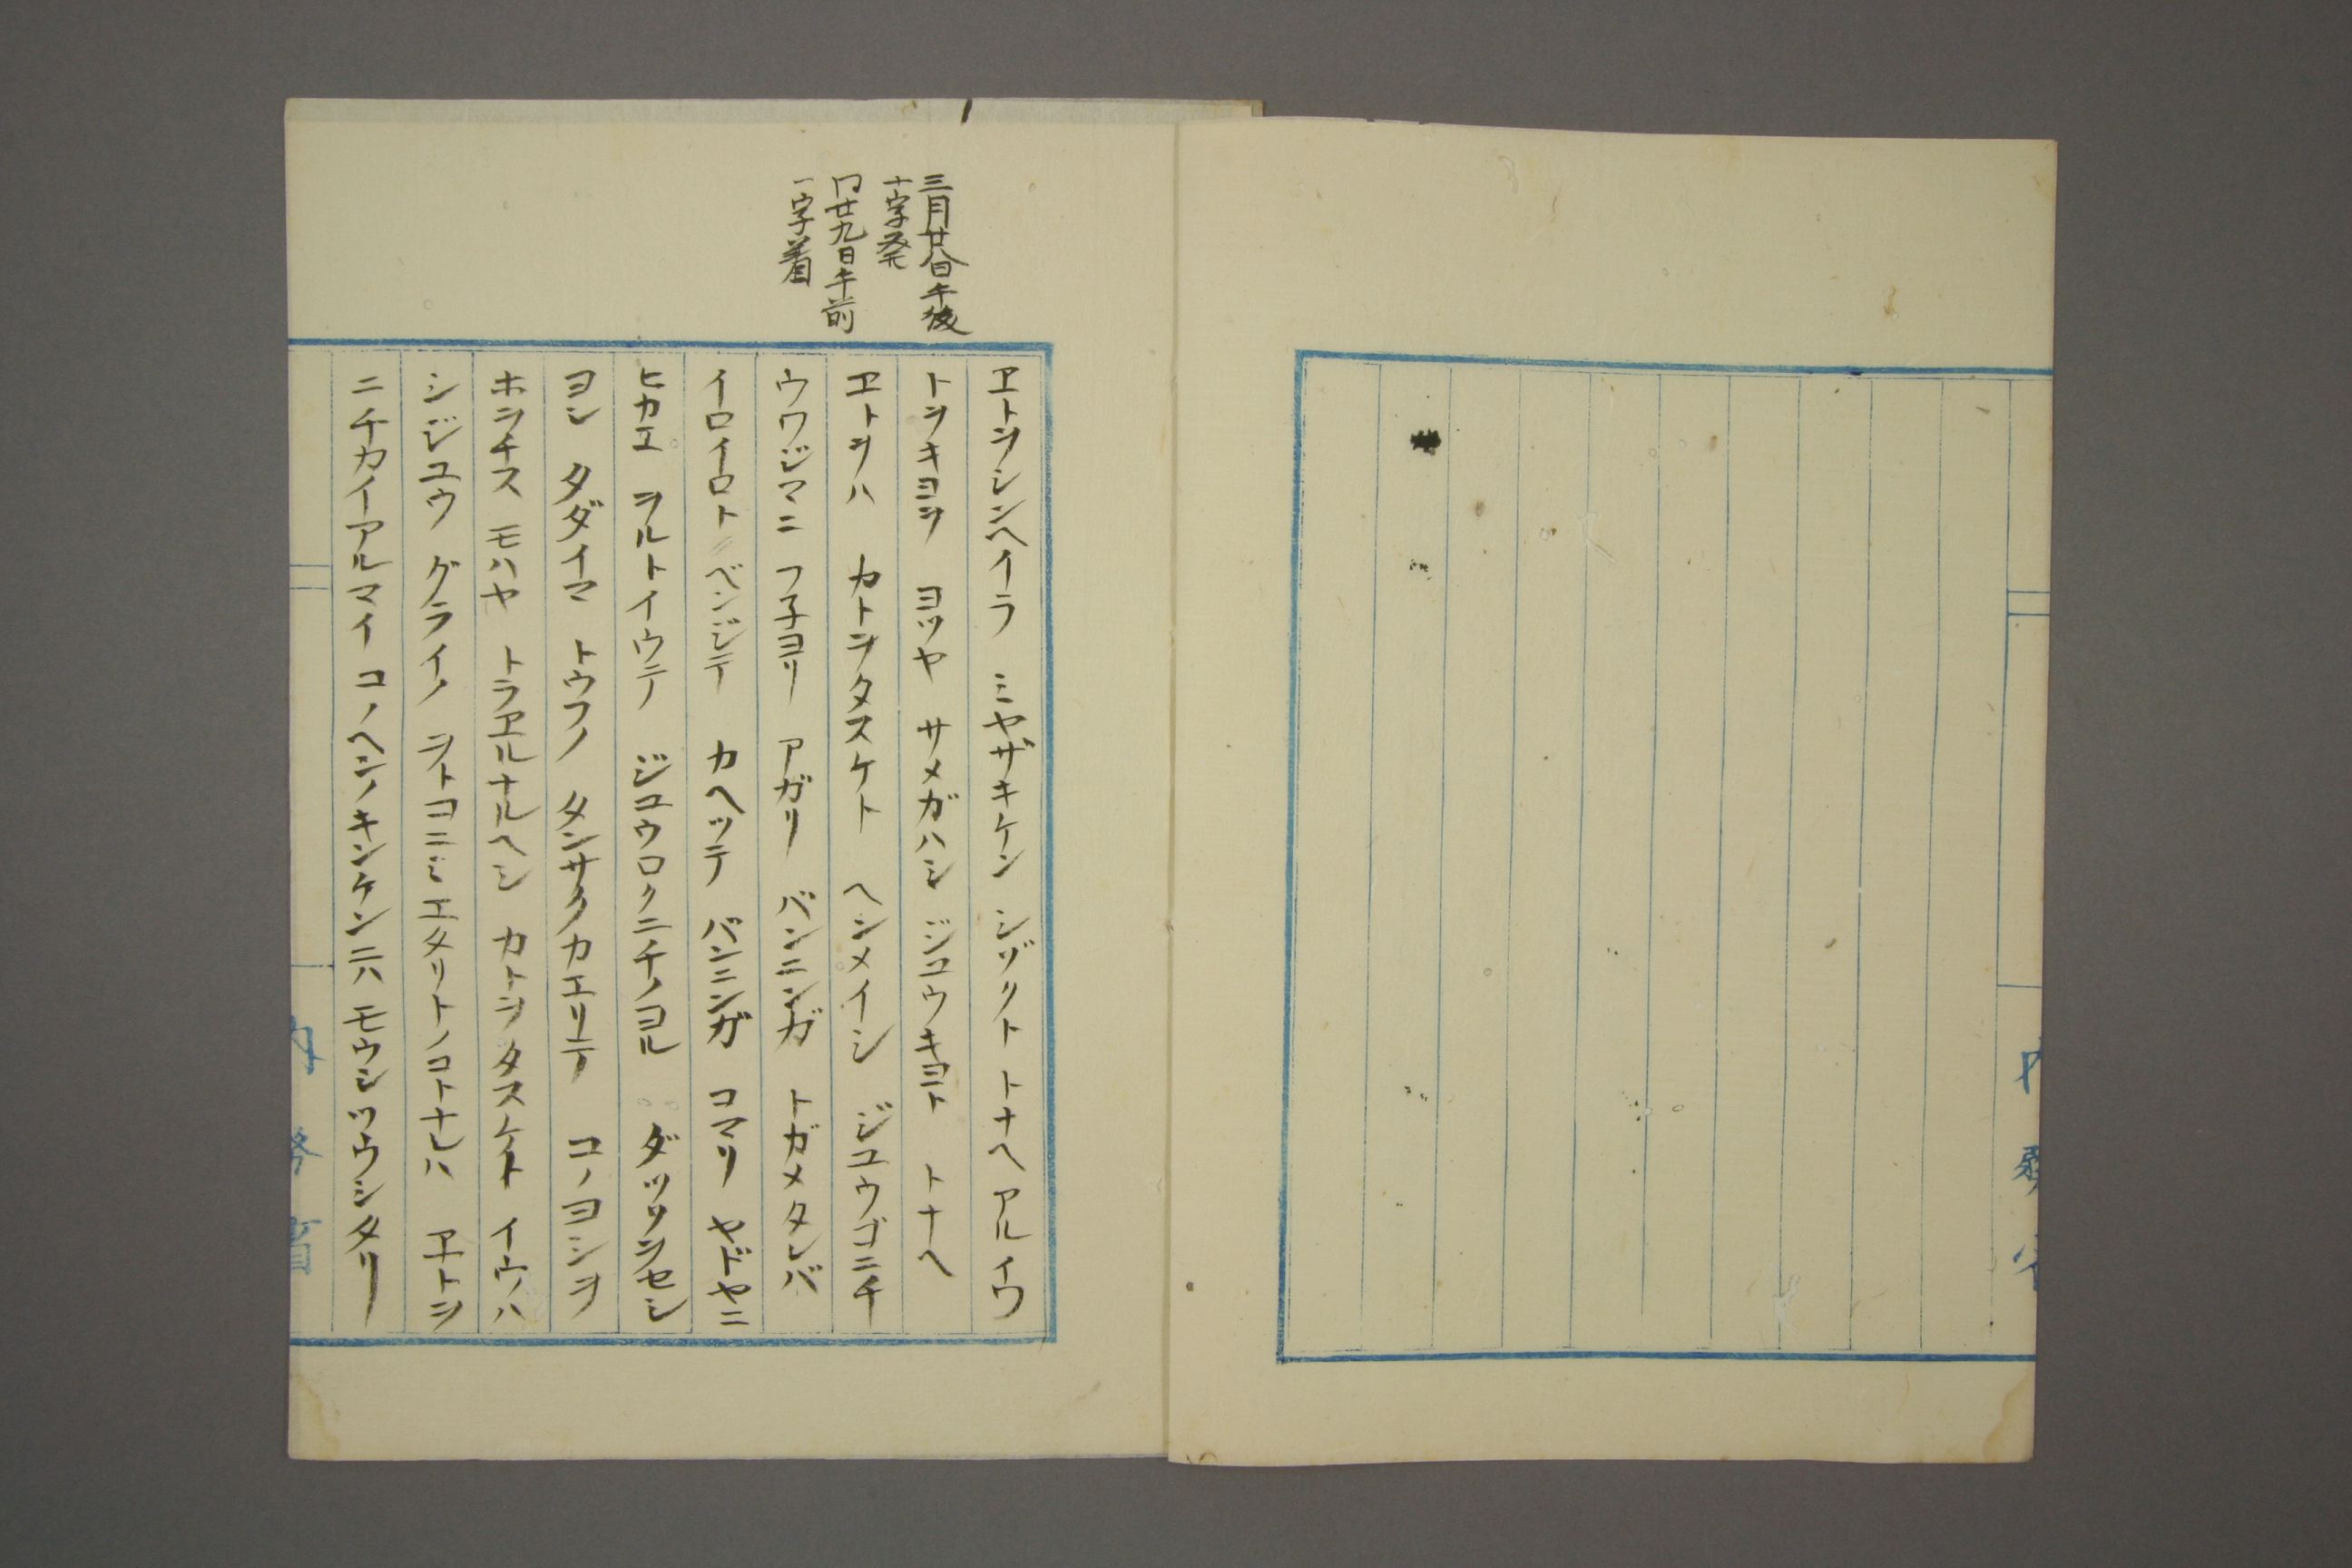 三月廿八日午後
十字発
同廿九日午前
一字着
ヱトヲシンヘイラ ミヤザキケン シゾクト トナヘ アルイワ
トヲキヨヲ ヨツヤ サメガハシ ジユウキヨト トナヘ
ヱトヲハ カトヲタスケト ヘンメイシ ジユウゴニチ
ウワジマニ フ子ヨリ アガリ バンニンガ トガメタレバ
イロイロト ベンジテ カヘツテ バンニンガ コマリ ヤドヤニ
ヒカエ ヲルトイウテ ジユウロクニチノヨル ダツソヲセシ
ヨシ タダイマ トウフノ タンサクカエリテ コノヨシヲ
ホヲチス モハヤ トラヱルナルヘシ カトヲタスケト イウハ
シジユウ グライノ ヲトコニミエタリトノコトナレハ ヱトヲ
ニチカイーアルマイ コノヘンノキンケンニハ モウシツウシタリ
内務省
内務省